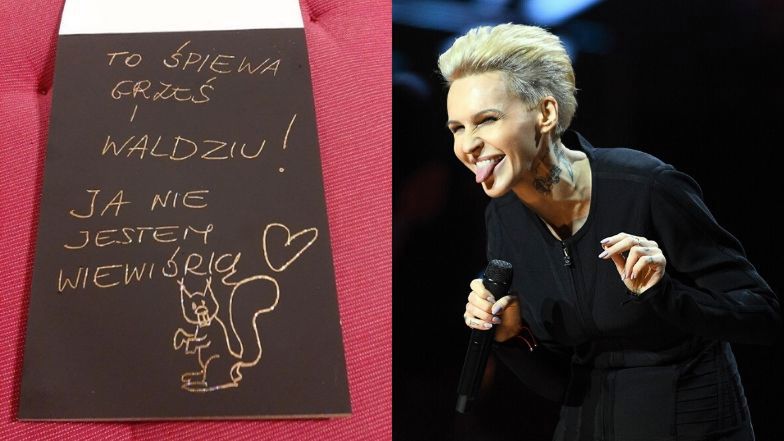 TO ŚPIEWA
GRZEŚ
I
WALDZIU!
JA NIE
JESTEM
WIEWIÓRKĄ